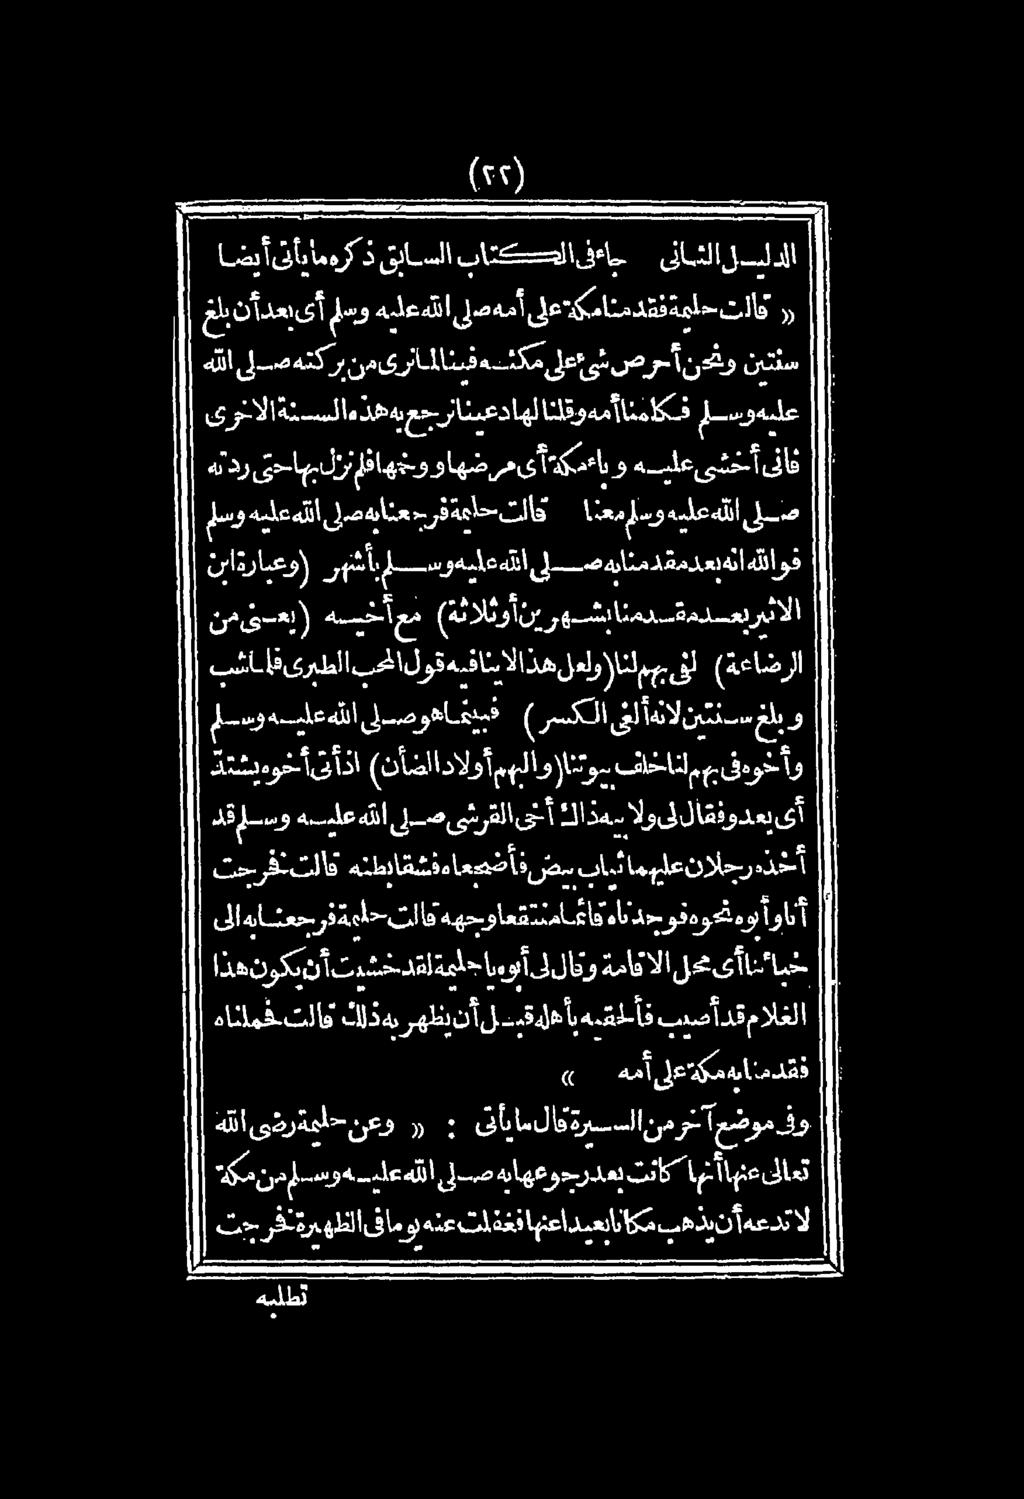 (٢٢)
الدليل الثانى جاء فى الكتاب السابق ذكره ما يأتى أيضا
« قالت حليمة فقدمنا مكة على أمه صلى الله عليه وسلم أى بعد أن بلغ
سنتين ونحن أحرص شئ على مكثه فينا لما نرى من بركته صلى الله
عليه وسلم فكلمنا أمه وقلنا لها دعينا نرجع به هذه السنة الاخرى
فانى أخشى عليه وباء مكة أى مرضها ووخمها فلم نزل بها حتى ردته
صلى الله عليه وسلم معنا قالت حليمة فرجعنا به صلى الله عليه وسلم
فوالله انه بعد مقدمنا به صلى الله عليه وسلم بأشهر (وعبارة ابن
الاثير بعد مقدمنا بشهرين أو ثلاثة) مع أخيه (يعنى من
الرضاعة) لفى بهم لنا (ولعل هذا لا ينافيه قول المحب الطبرى فلما شب
وبلغ سنتين لانه ألغى الكسر) فبينما هو صلى الله عليه وسلم
وأخوه فى بهم لنا خلف بيوتنا (والبهم أولاد الضأن) اذ أتى أخوه يشتد
أى يعدو فقال لى ولابيه ذاك أخى القرشى صلى الله عليه وسلم قد
أخذه رجلان عليهما ثياب بيض فأضجعاه فشقا بطنه قالت فخرجت
أنا وأبوه نحوه فوجدناه قائما منتقعا وجهه قالت حليمة فرجعنا به الى
خبائنا أى محل الاقامة وقال لى أبوه يا حليمة لقد خشيت أن يكون هذا
الغلام قد أصيب فألحقيه بأهله قبل أن يظهر به ذلك قالت فحملناه
فقدمنا به مكة على أمه »
وفى موضع آخر من السيرة قال ما يأتى : « وعن حليمة رضى الله
تعالى عنها أنها كانت بعد رجوعها به صلى الله عليه وسلم من مكة
لا تدعه أن يذهب مكانا بعيدا عنها فغفلت عنه يوما فى الظهيرة فخرجت
تطلبه